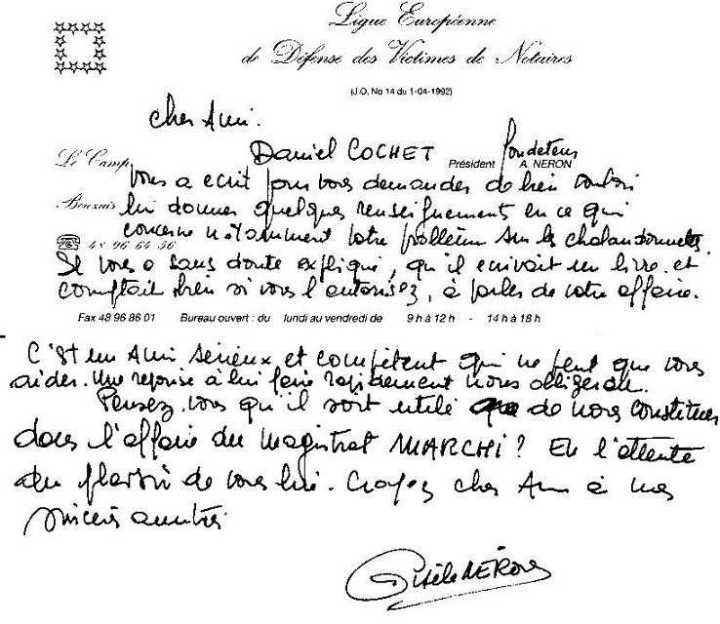 Ligue Européenne
de Défense des Victimes de Notaires
(J.O. No 14 du 1-04-1992)
cher Ami.
Daniel COCHET Président fondateur A. NERON
Le Camp
vous a ecrit pour vous demander de bien vouloir
lui donner quelques renseignements en ce qui
concerne notamment votre problème sur les
48 96 64 56
Il vous a sans doute expliqué, qu'il ecrivait un livre et
comptait bien si vous l'autorisez, à parler de votre affaire.
Fax 48 96 86 01 Bureau ouvert : du lundi au vendredi de 9 h à 12 h - 14 h à 18 h
C'est un Ami sérieux et compétent qui ne peut que vous
aider. Une reponse à lui faire rapidement nous obligerait.
Pensez vous qu'il soit utile de nous constituer
dans l'affaire du Magistrat MARCHI ? En l'attente
du plaisir de vous lire. Croyez cher Ami à nos
sincères amitiés
Gisèle NERON